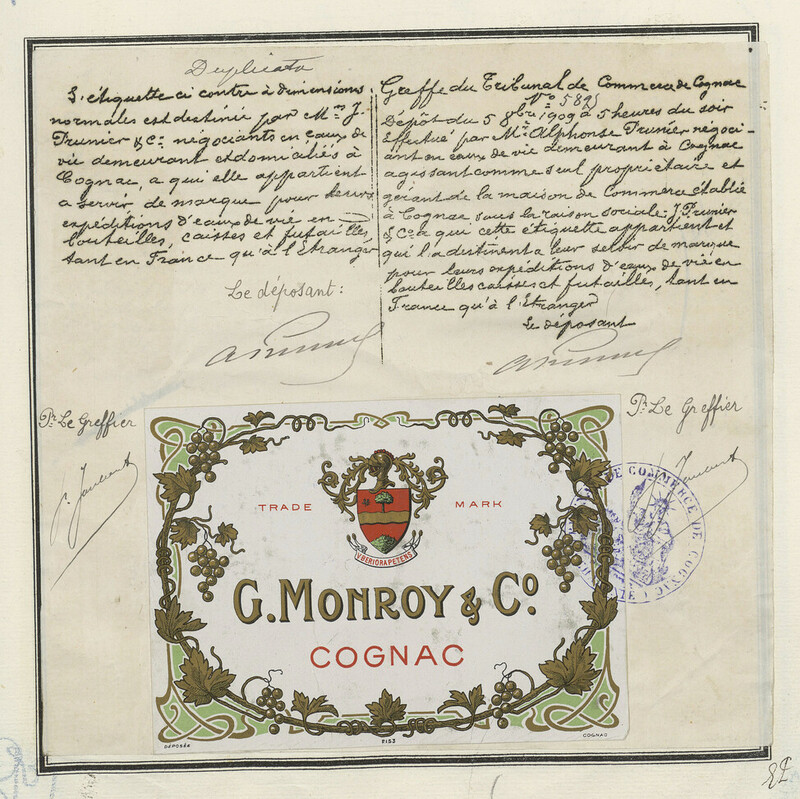 Duplicata
L'étiquette ci contre à dimensions
normales est destinée par Mrs J.
Prunier & Co négociants en eaux de
vie demeurant et domiciliés à
Cognac, a qui elle appartient
a servir de marque pour leurs
expéditions d'eaux de vie en
bouteilles, caisses et futailles
tant en France qu'à l'Etranger
Le déposant:
Greffe du Tribunal de Commerce de Cognac
No 5825
Dépôt du 5 8bre 1909 à 5 heures du soir
Effectué par Mr Alphonse Prunier négoci-
ant en eaux de vie demeurant à Cognac
agissant comme seul propriétaire et
gérant de la maison de Commerce établie
à Cognac sous la raison sociale: J. Prunier
& Co a qui cette étiquette appartient et
qui l'a destinent a leur servir de marque
pour leurs expéditions d'eaux de vie en
bouteilles caisses et futailles, tant en
France qu'à l'Etranger
Le déposant
Pr Le Greffier
Pr Le Greffier
TRADE MARK
VBERIORA PETENS
G. MONROY & Co.
COGNAC
DÉPOSÉE
7153
COGNAC
DE COMMERCE DE COGNAC